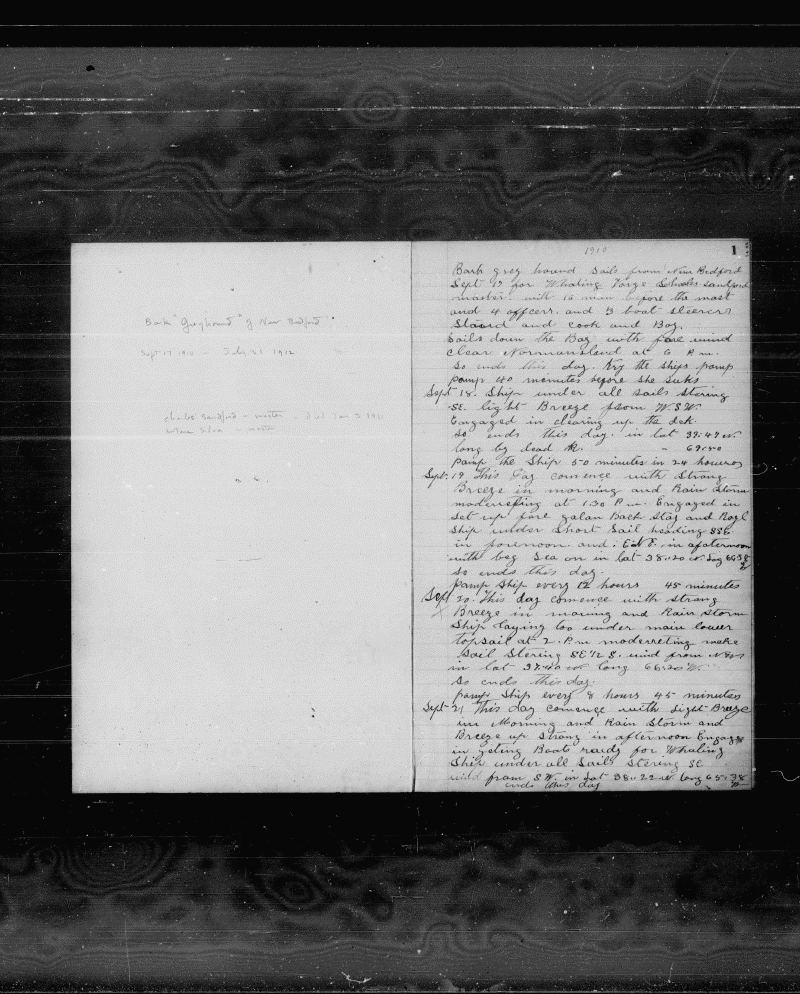 Bark "Greyhound" of New Bedford
Sept 17 1910 - July 31 1912
Charles Sandford - master - died Jan 3 1911
Silva - mate
1910
1
Bark grey hound Sails from New Bedford
Sept 17 for Whaling Voige Scharles Sandford
master. with 16 men before the mast
and 4 officers. and 3 boat steerers
Stoard and cook and Boy.
Sails down the Bay with fare wind
clear Normansland at 6 P.m.
So ends this day. Try the Ships pamp
pamp 40 menutes before she Suks
Sept 18. Ship under all Sails Stering
SE. light Breeze from W.S.W.
Engaged in clearing up the dek.
So ends this day. in lat 39.47 N.
long by dead R. " 69.50
pamp the Ship 50 minutes in 24 houres
Sept. 19 This Day comence with Strong
Breeze in morning and Rain Storm
moderreting at 1.30 P.m. Engaged in
Set up fore galan Back Stay and Royl
Ship under Short Sail heading SSE
in forenoon and in afaternoon
with beg Sea on in lat 38.20 N. Long
So ends this day.
pamp Ship every 12 hours 45 minutes
Sept 20. This day comence with Strong
Breeze in morning and Rain Storm
Ship laying too under main lower
topsail at 2. P.m moderreting make
Sail Stering SE 1/2 S. wind from
in lat 37.40 N long 66.20 W.
So ends this day.
pamp Ship every 8 hours 45 minutes
Sept 21 This day comence with Light Breeze
in Morning and Rain Storm and
Breeze up Strong in afternoon Engagen
in geting Boats raidy for Whaling
Ship under all Sails Stering SE
wind from SW. in Lat 38.22 N Long 65.38
ends this day